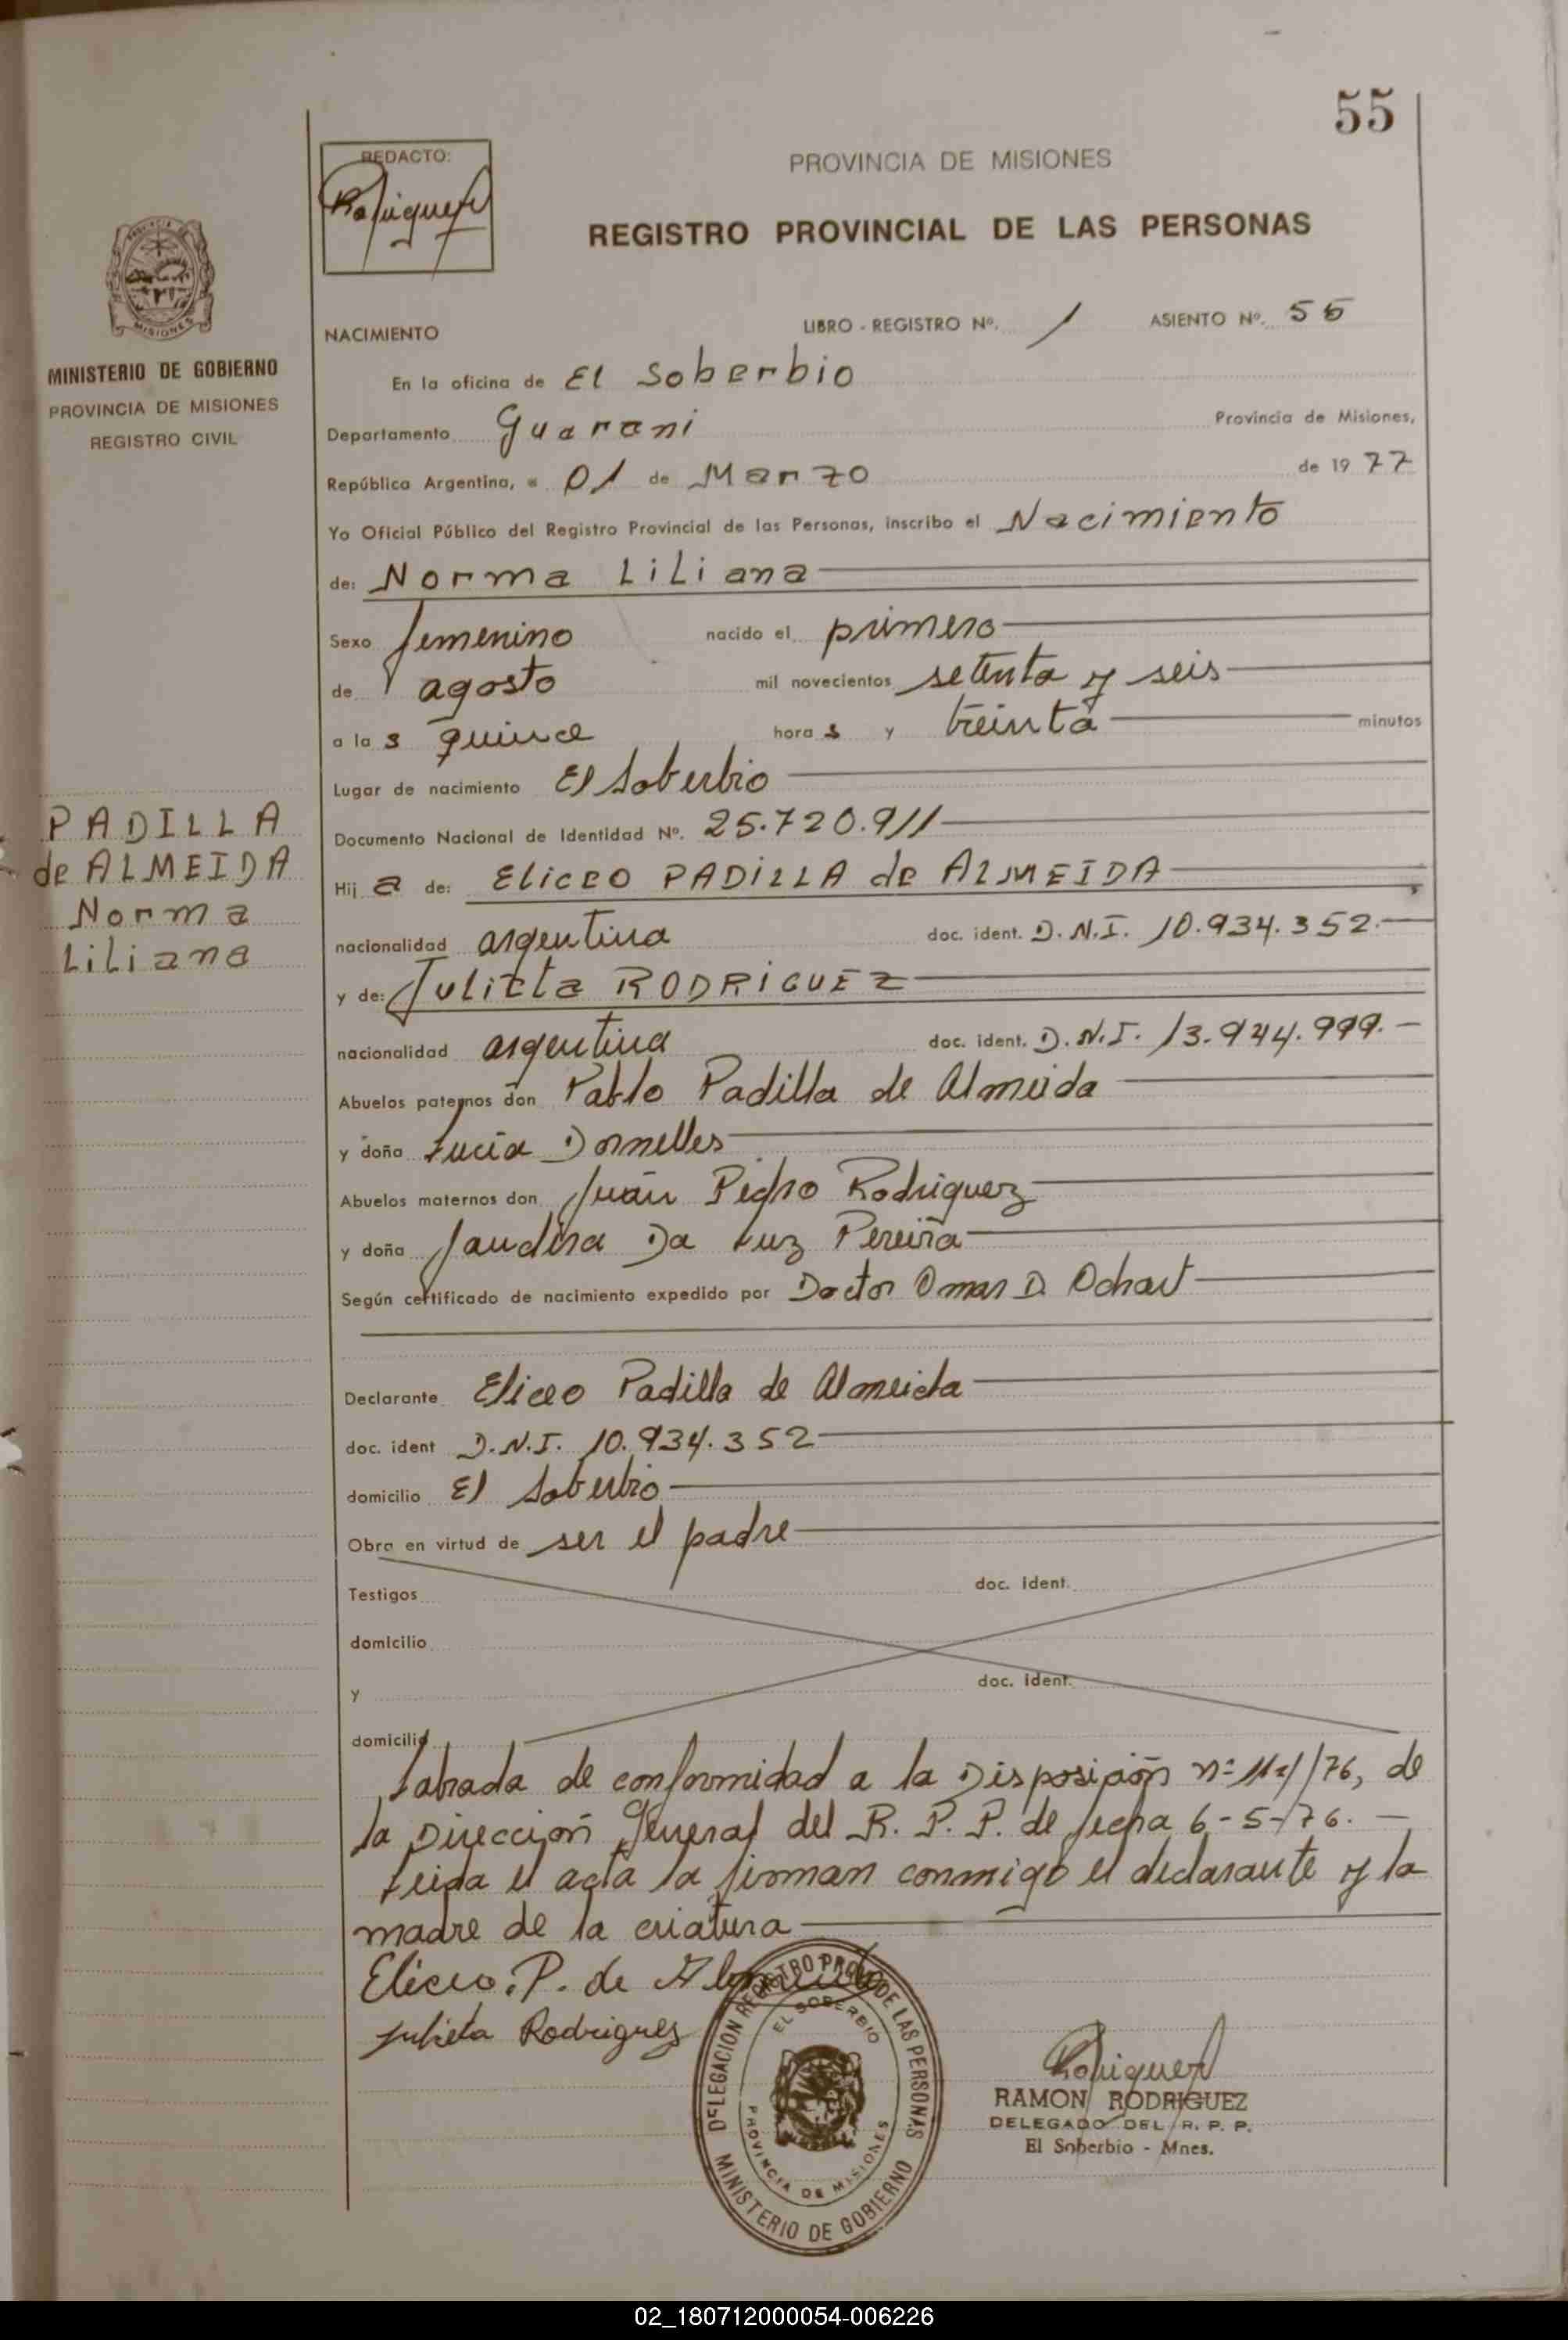 55
REDACTO:
PROVINCIA DE MISIONES
REGISTRO PROVINCIAL DE LAS PERSONAS
MINISTERIO DE GOBIERNO
PROVINCIA DE MISIONES
REGISTRO CIVIL
NACIMIENTO LIBRO - REGISTRO Nº. 1 ASIENTO Nº. 55
En la oficina de El Soberbio
Departamento Guarani Provincia de Misiones,
República Argentina, a 01 de Marzo de 1977
Yo Oficial Público del Registro Provincial de las Personas, inscribo el Nacimiento
de: Norma Liliana
Sexo femenino nacido el primero
de agosto mil novecientos setenta y seis
a las quince horas y treinta minutos
Lugar de nacimiento El Soberbio
Documento Nacional de Identidad Nº. 25.720.911
PADILLA
de ALMEIDA
Norma
Liliana
Hija de: Eliceo PADILLA de ALMEIDA
nacionalidad argentina doc. ident. D.N.I. 10.934.352.-
y de: Julieta RODRIGUEZ
nacionalidad argentina doc. ident. D.N.I. 13.944.999.-
Abuelos paternos don Pablo Padilla de Almeida
y doña Lucía Dornelles
Abuelos maternos don Juan Pedro Rodriguez
y doña Jandira Da Luz Pereira
Según certificado de nacimiento expedido por Doctor Omar D.
Declarante Eliceo Padilla de Almeida
doc. ident D.N.I. 10.934.352
domicilio El Soberbio
Obra en virtud de ser el padre
Testigos doc. ident.
domicilio
y doc. ident.
domicilio
Labrada de conformidad a la Disposición nº de
la Dirección General del R. P. P. de fecha 6-5-76.-
Leida el acta la firman conmigo el declarante y la
madre de la criatura
Eliceo. P. de Almeida
Julieta Rodriguez
DELEGACION REGISTRO PROV. DE LAS PERSONAS
EL SOBERBIO
PROVINCIA DE MISIONES
MINISTERIO DE GOBIERNO
RAMON RODRIGUEZ
DELEGADO DEL R. P. P.
El Soberbio - Mnes.
02_180712000054-006226